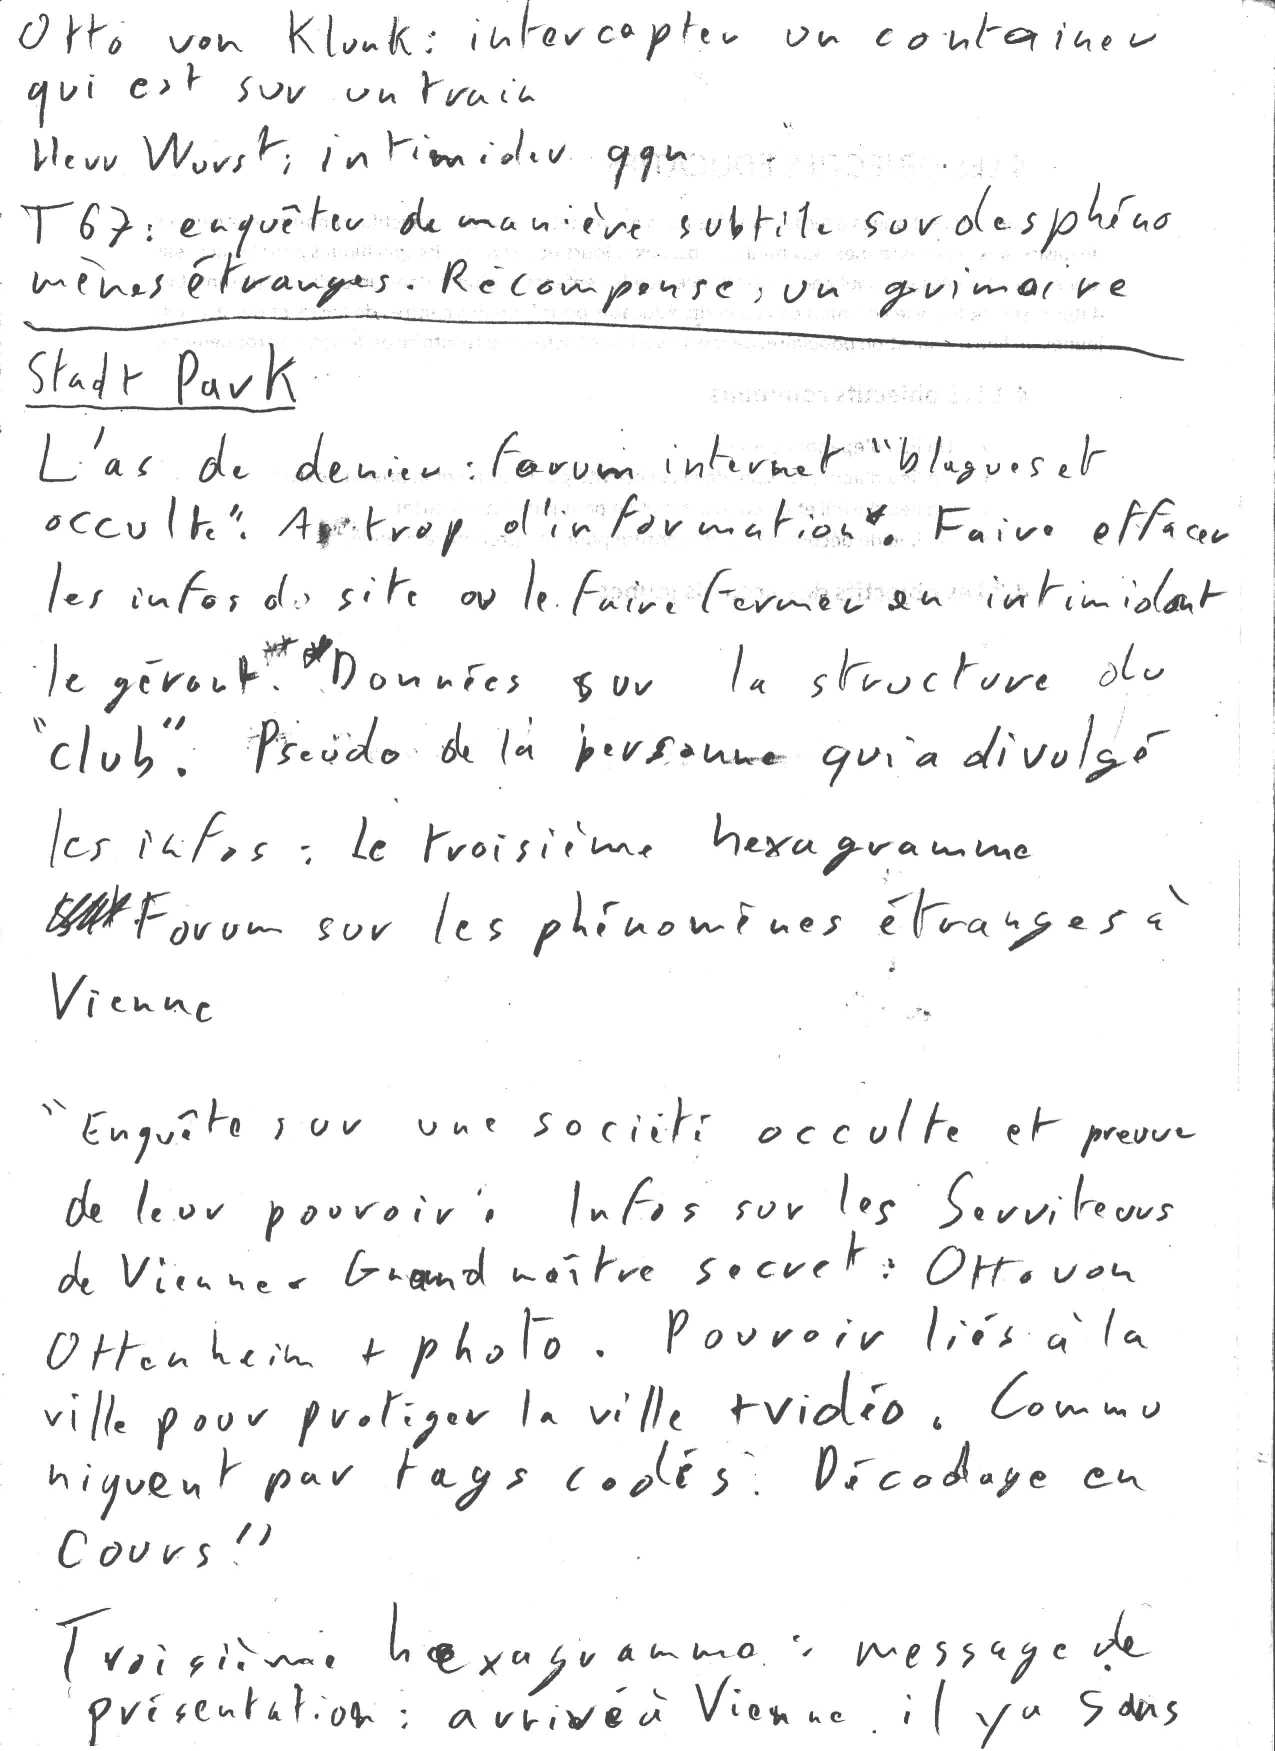 Otto von Klunk : intercepter un container
qui est sur un train
Herr Wurst : intimider qqn
T 67 : enquêter de manière subtile sur des phéno
mènes étranges. Récompense, un grimoire
Stadt Park
L'as de denier : forum internet "blagues et
occulte". A trop d'information*. Faire effacer
les infos du site ou le faire fermer en intimidant
le gérant.** *Données sur la structure du
"club". Pseudo de la personne qui a divulgé
les infos : Le troisième hexagramme
Forum sur les phénomènes étranges à
Vienne
"Enquête sur une société occulte et preuve
de leur pouvoir : Infos sur les Serviteurs
de Vienne. Grand maître secret : Otto von
Ottenheim + photo. Pouvoir liés à la
ville pour protéger la ville + vidéo. Commu
niquent par tags codés. Décodage en
cours"
Troisième hexagramme : message de
présentation : arrivé à Vienne il y a 5 ans